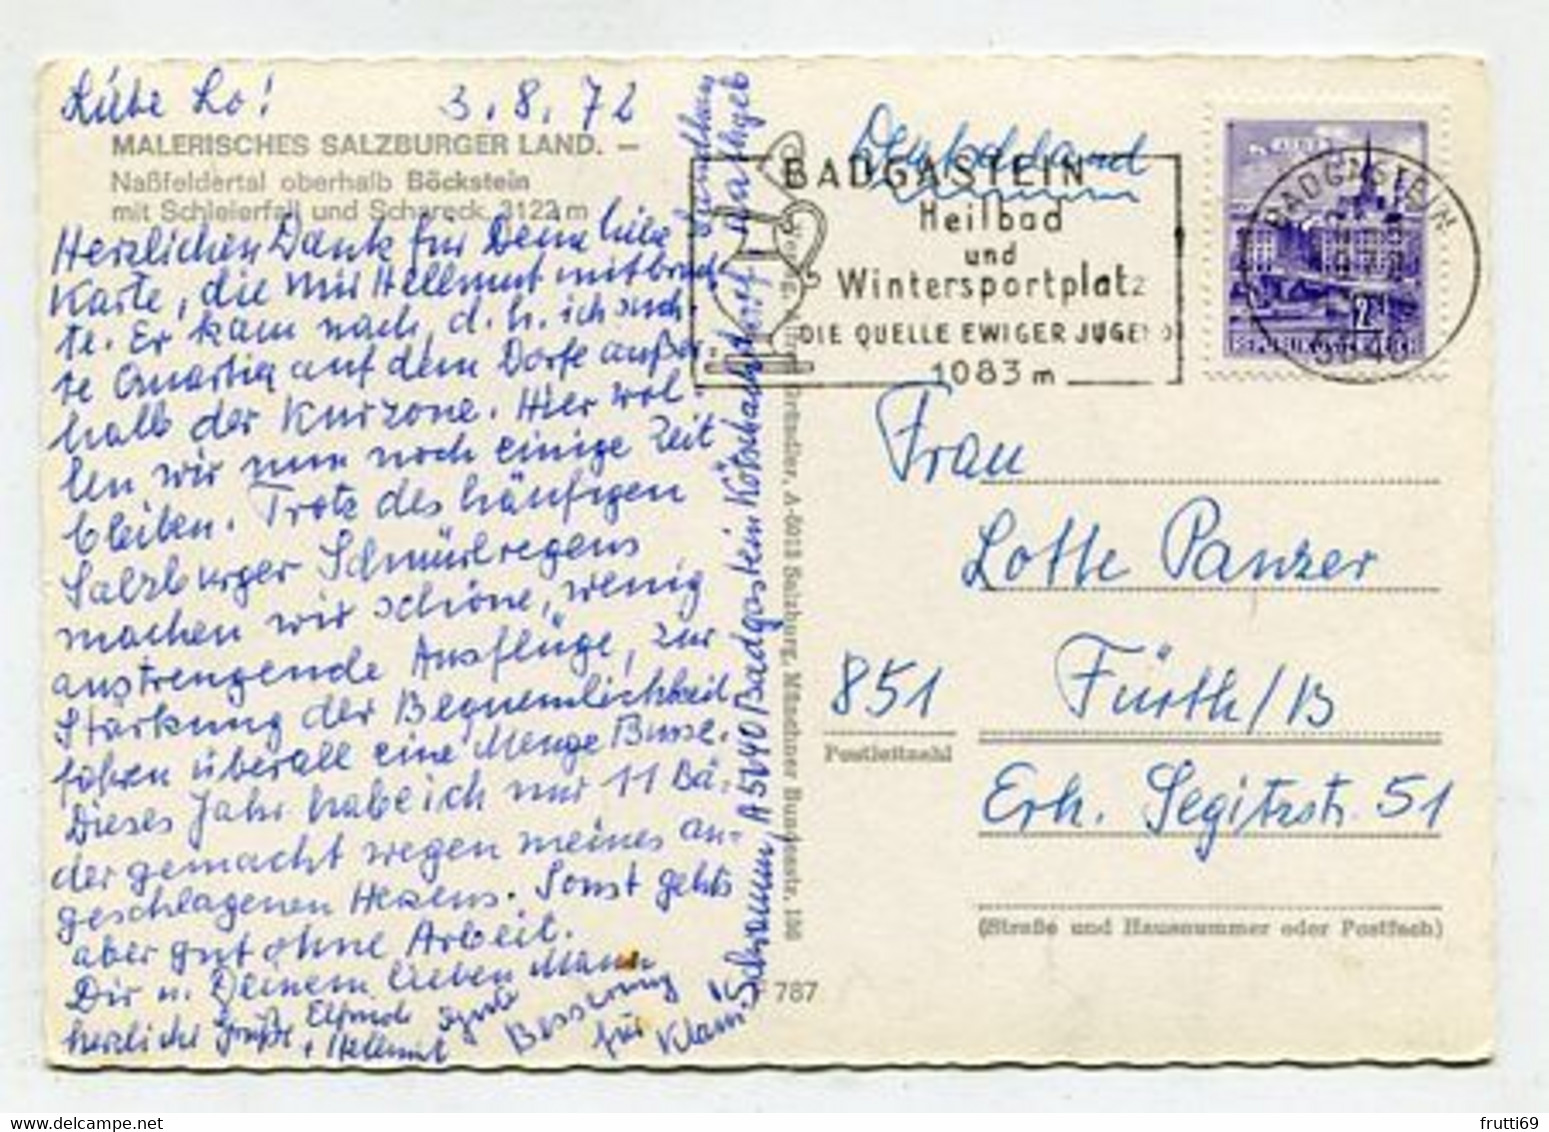 Liebe Lo! 3.8.72
MALERISCHES SALZBURGER LAND. —
Naßfeldertal oberhalb Böckstein
mit Schleierfall und Schareck, 3122 m
Herzlichen Dank für Deine liebe
Karte, die mir Hellmut mitbrach-
te. Er kam nach, d.h. ich such-
te Quartier auf dem Dorfe außer-
halb der Kurzone. Hier wol-
len wir nun noch einige Zeit
bleiben. Trotz des häufigen
Salzburger Schnürlregens
machen wir schöne, wenig
anstrengende Ausflüge, zur
Stärkung der Bequemlichkeit
fahren überall eine Menge Busse.
Dieses Jahr habe ich nur 11 Bä-
der gemacht wegen meines an-
geschlagenen Herzens. Sonst gehts
aber gut ohne Arbeit.
Dir u. Deinem lieben Mann
herzliche Grüße
+ Hellmut
gute
Besserung
für
Klaus
Schramm A 5640 Badgastein Kötschachdorf
Landhaus
Verlag Alfred Gründler, A-5013 Salzburg, Münchner Bundesstr. 156
787
Deutschland
BADGASTEIN
Heilbad
und
Wintersportplatz
DIE QUELLE EWIGER JUGEND
1083 m
BADGASTEIN
5640
2
REPUBLIK ÖSTERREICH
Frau
Lotte Panzer
851 Fürth/B
Postleitzahl
Erh. Segitzstr. 51
(Straße und Hausnummer oder Postfach)
frutti69